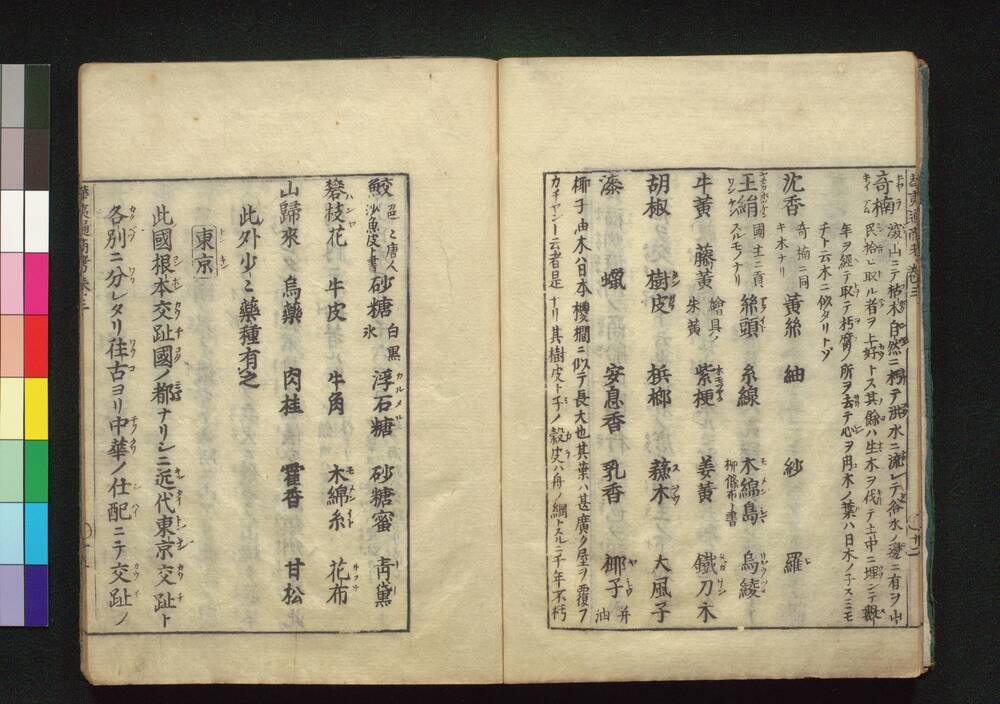 奇楠 深山ニテ枯木自然ニ朽テ洪水ニ流レテ谷水ノ邊ニ有ヲ山
民拾ヒ取ル者ヲ上好トス其餘ハ生木ヲ伐テ土中ニ埋ンテ數
年ヲ經テ取テ朽腐ノ所ヲ去テ心ヲ用木ノ葉ハ日本ノ
チト云木ニ似タリトゾ
沈香 奇楠ニ同キ木ナリ 黃絲 紬 紗 羅
王絹 國主ニ貢スルモノナリ 絲頭 糸線 木綿島 柳條布ト書 烏綾
牛黃 藤黃 繪具ノ朱黃 紫梗 姜黃 鐵刀木
胡椒 樹皮 梹榔 蘇木 大風子
漆 蠟 安息香 乳香 椰子 并油
椰子油木ハ日本椶櫚ニ似テ長大也其葉ハ甚廣ク屋ヲ覆フ
カチヤント云者是ナリ其樹皮ト子ノ殼皮ハ舟ノ綱トスルニ千年不朽
鮫 沙魚皮ト書 砂糖 白黑氷 浮石糖 砂糖蜜 靑黛
礬枝花 牛皮 牛角 木綿糸 花布
山歸來 烏藥 肉桂 藿香 甘松
此外少々藥種有之
東京
此國根本交趾國ノ都ナリシニ近代東京交趾ト
各別ニ分レタリ往古ヨリ中華ノ仕配ニテ交趾ノ